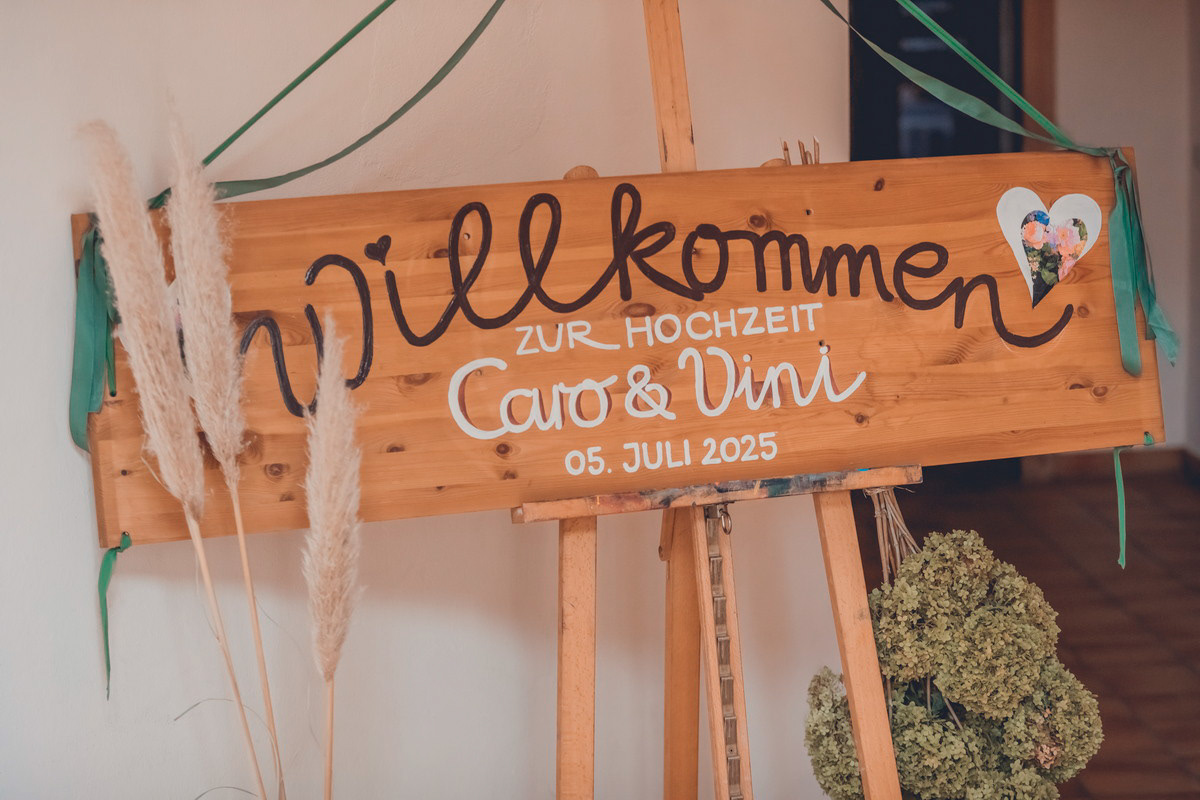 Willkommen
ZUR HOCHZEIT
Caro & Vini
05. JULI 2025